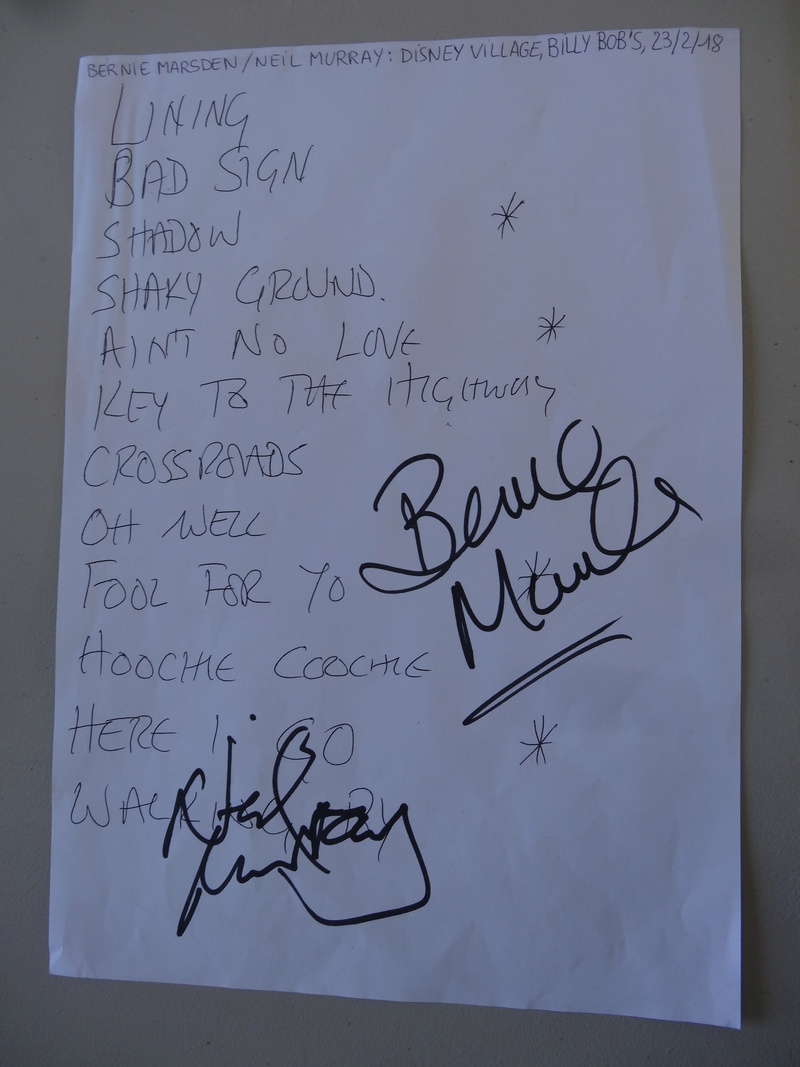 BERNIE MARSDEN/NEIL MURRAY: DISNEY VILLAGE, BILLY BOB'S, 23/2/18
LINING
BAD SIGN
SHADOW *
SHAKY GROUND.
AINT NO LOVE *
KEY TO THE HIGHWAY
CROSSROADS
OH WELL
FOOL FOR YO *
HOOCHIE COOCHIE
HERE I GO *
Bernie
Marsden
Neil
Murray